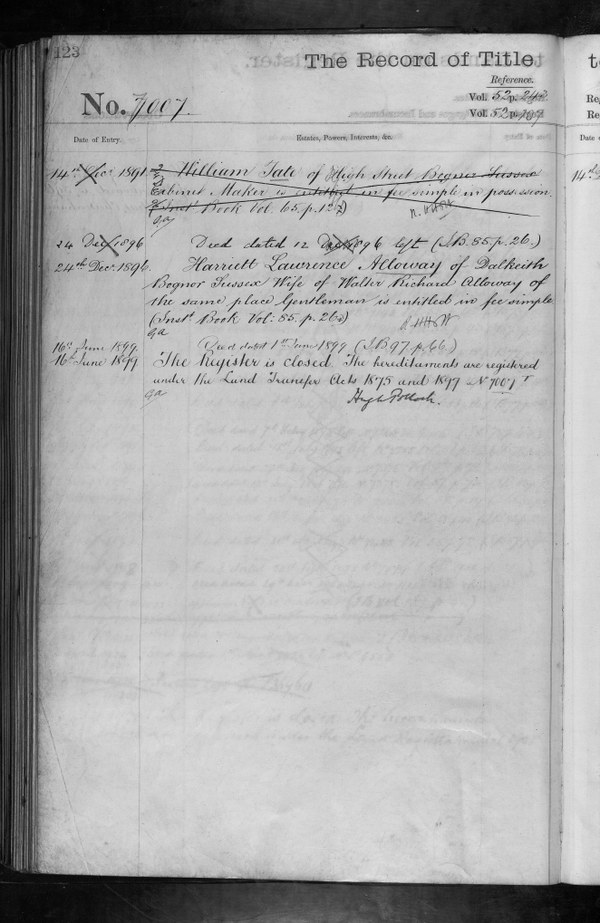 123
The Record of Title
Reference.
No. 7007. Vol. 52 p. 242
Vol. 53 p. 107
Date of Entry. Estates, Powers, Interests, &c.
14th Decr. 1891. William Tate of High Street Bognor Sussex
Cabinet Maker is entitled in fee simple in possession.
Inst. Book Vol. 65. p. 
24 Dec 1896 Deed dated 12 Dec 1896 left (I.B. 85. p. 26.)
24th Decr. 1896. Harriett Lawrence Alloway of Dalkeith
Bognor Sussex Wife of Walter Richard Alloway of
the same place Gentleman is entitled in fee simple
(Inst. Book Vol: 85. p. 26.)
ga
16th June 1899. Deed dated 1st June 1899 (I.B. 97. p. 66.)
16th June 1899 The Register is closed. The hereditaments are registered
under the Land Transfer Acts 1875 and 1897 No. 7007 T
ga
Hugh Pollock.